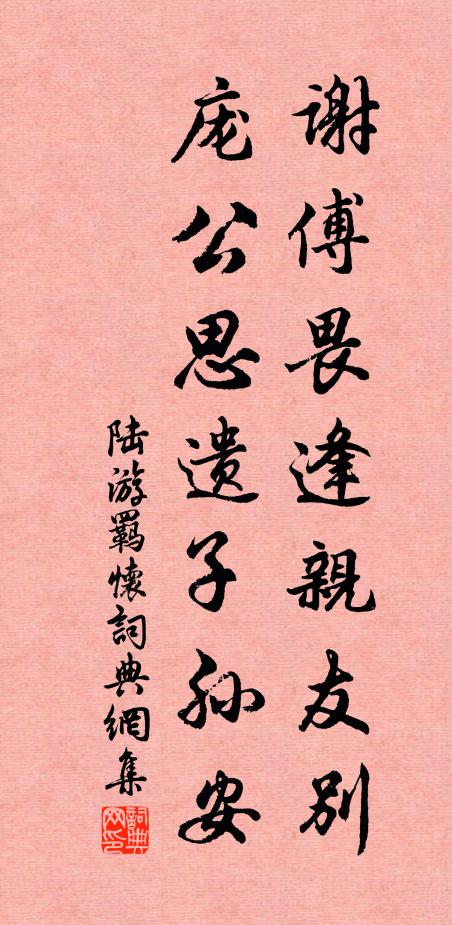 謝傅畏逢親友別
庞公思遗子孙安
陆游羁懷詞典網集
詞典网印